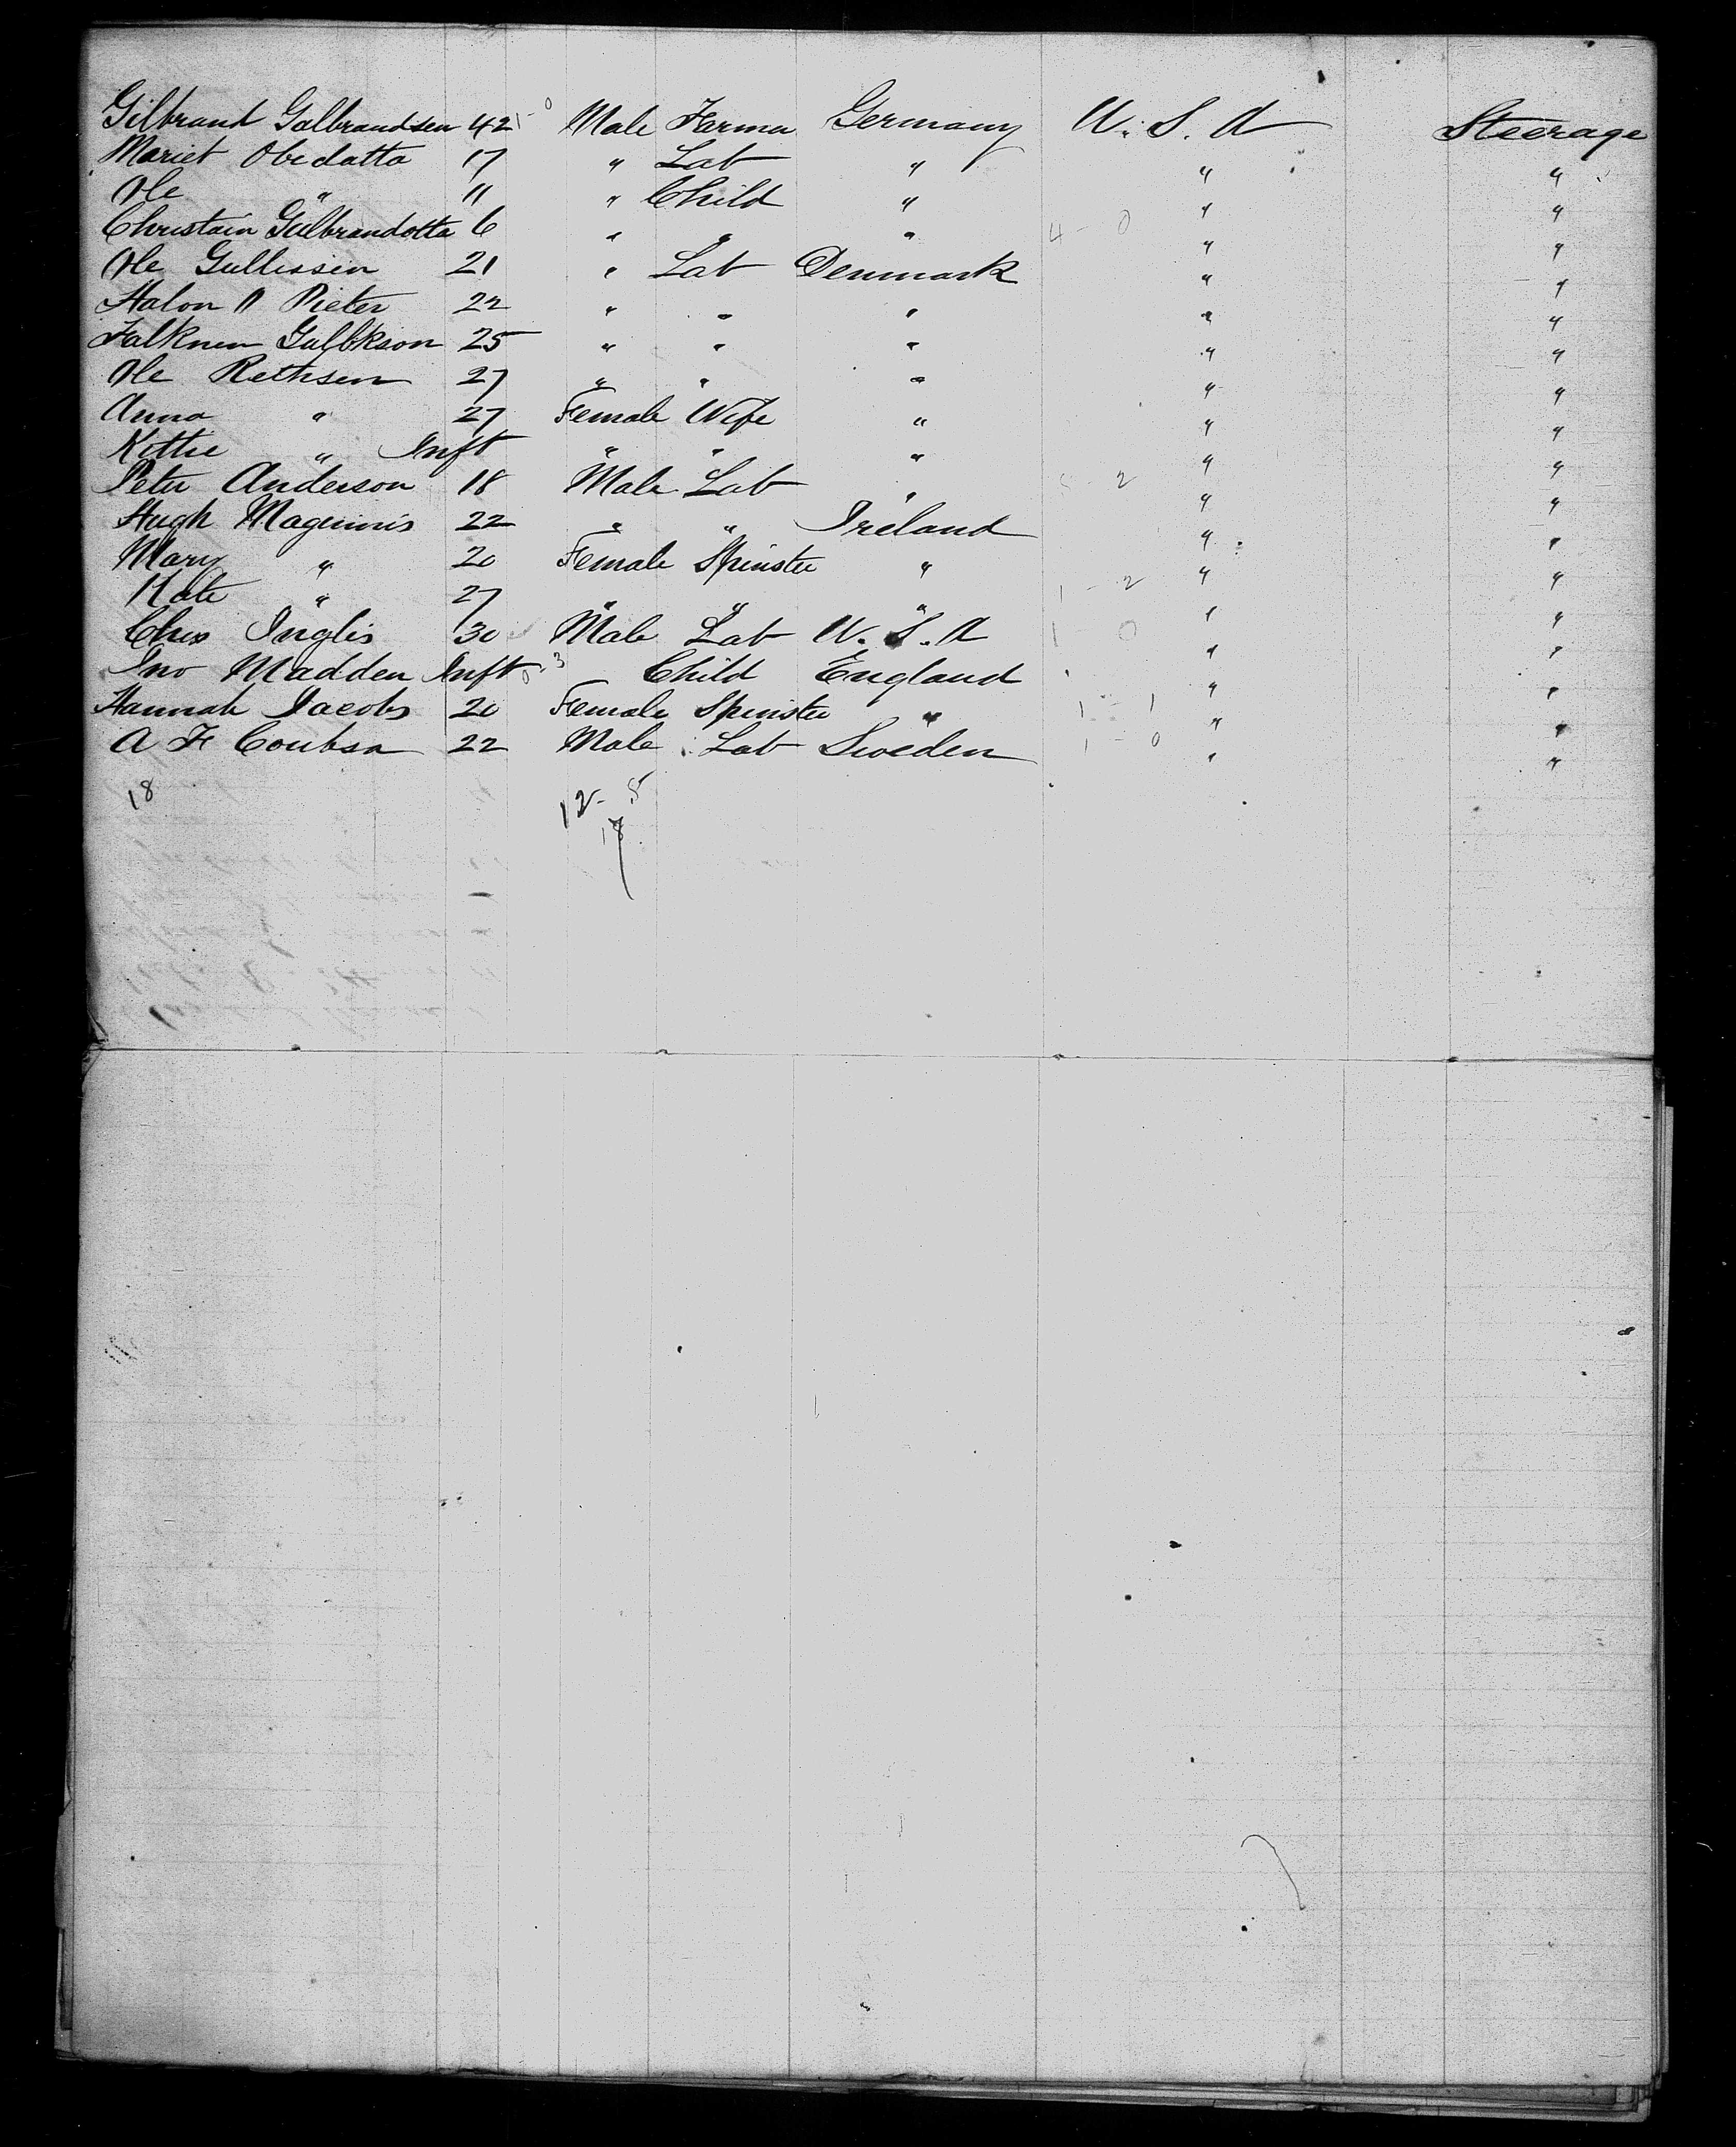 Gilbrand Galbrandsen 42 Male Farmer Germany U. S. A Steerage
Mariet Obedatta 17 " Lab " " "
Ole " 11 " Child " " "
Christain Gulbrandotta 6 " " " 4 - 0 " "
Ole Gullissen 21 " Lab Denmark " "
Halon A Pieter 22 " " " " "
Falknen Gulbkson 25 " " " " "
Ole Rethsen 27 " " " " "
Anna " 27 Female Wife " " "
Kittie " Inft " " " " "
Peter Anderson 18 Male Lab " 5 - 2 " "
Hugh Maguinis 22 " " Ireland " "
Mary " 20 Female Spinster " " "
Kate " 27 " " " 1 - 2 " "
Chas Inglis 30 Male Lab U. S. A 1 0 " "
Jno Madden Inft Child England " "
Hannah Jacobs 20 Female Spinster " 1 - 1 " "
A F Coubsa 22 Male Lab Sweden 1 - 0 " "
18 12 - 5